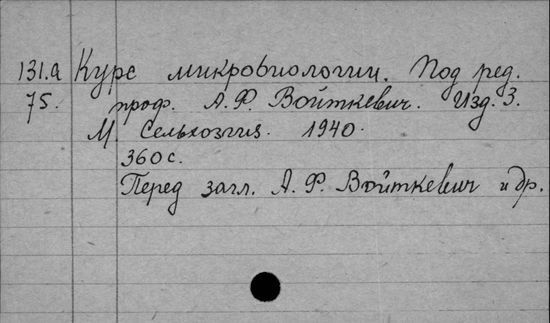 131.а Курс микробиологии. Под ред.
75. проф. А. Ф. Войткевич. Изд. 3.
М. Сельхозгиз. 1940.
360 с.
Перед загл. А. Ф. Войткевич и др.